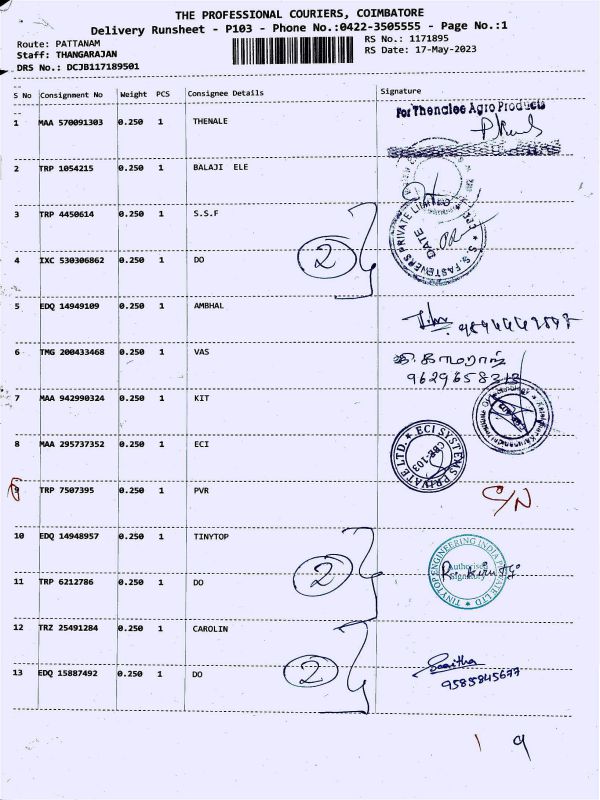 THE PROFESSIONAL COURIERS, COIMBATORE
Delivery Runsheet - P103 - Phone No.:0422-3505555 - Page No.:1
Route: PATTANAM
RS No.: 1171895
Staff: THANGARAJAN
RS Date: 17-May-2023
DRS No.: DCJB117189501
S No Consignment No Weight PCS Consignee Details Signature
1 MAA 570091303 0.250 1 THENALE
For Thenalee Agro Products
2 TRP 1054215 0.250 1 BALAJI ELE
3 TRP 4450614 0.250 1 S.S.F
S.S. FASTENERS PRIVATE LIMITED
DATE
4 IXC 530306862 0.250 1 DO
2
5 EDQ 14949109 0.250 1 AMBHAL
6 TMG 200433468 0.250 1 VAS
கி. காமராஜ்
7 MAA 942990324 0.250 1 KIT
8 MAA 295737352 0.250 1 ECI
ECI SYSTEMS PRIVATE LTD.
CBE-103
9 TRP 7507395 0.250 1 PVR
S/N
10 EDQ 14948957 0.250 1 TINYTOP
TINYTOP ENGINEERING INDIA PRIVATE LTD
Authorised
Signatory
11 TRP 6212786 0.250 1 DO
2
12 TRZ 25491284 0.250 1 CAROLIN
13 EDQ 15887492 0.250 1 DO
2
9585845677
1 9